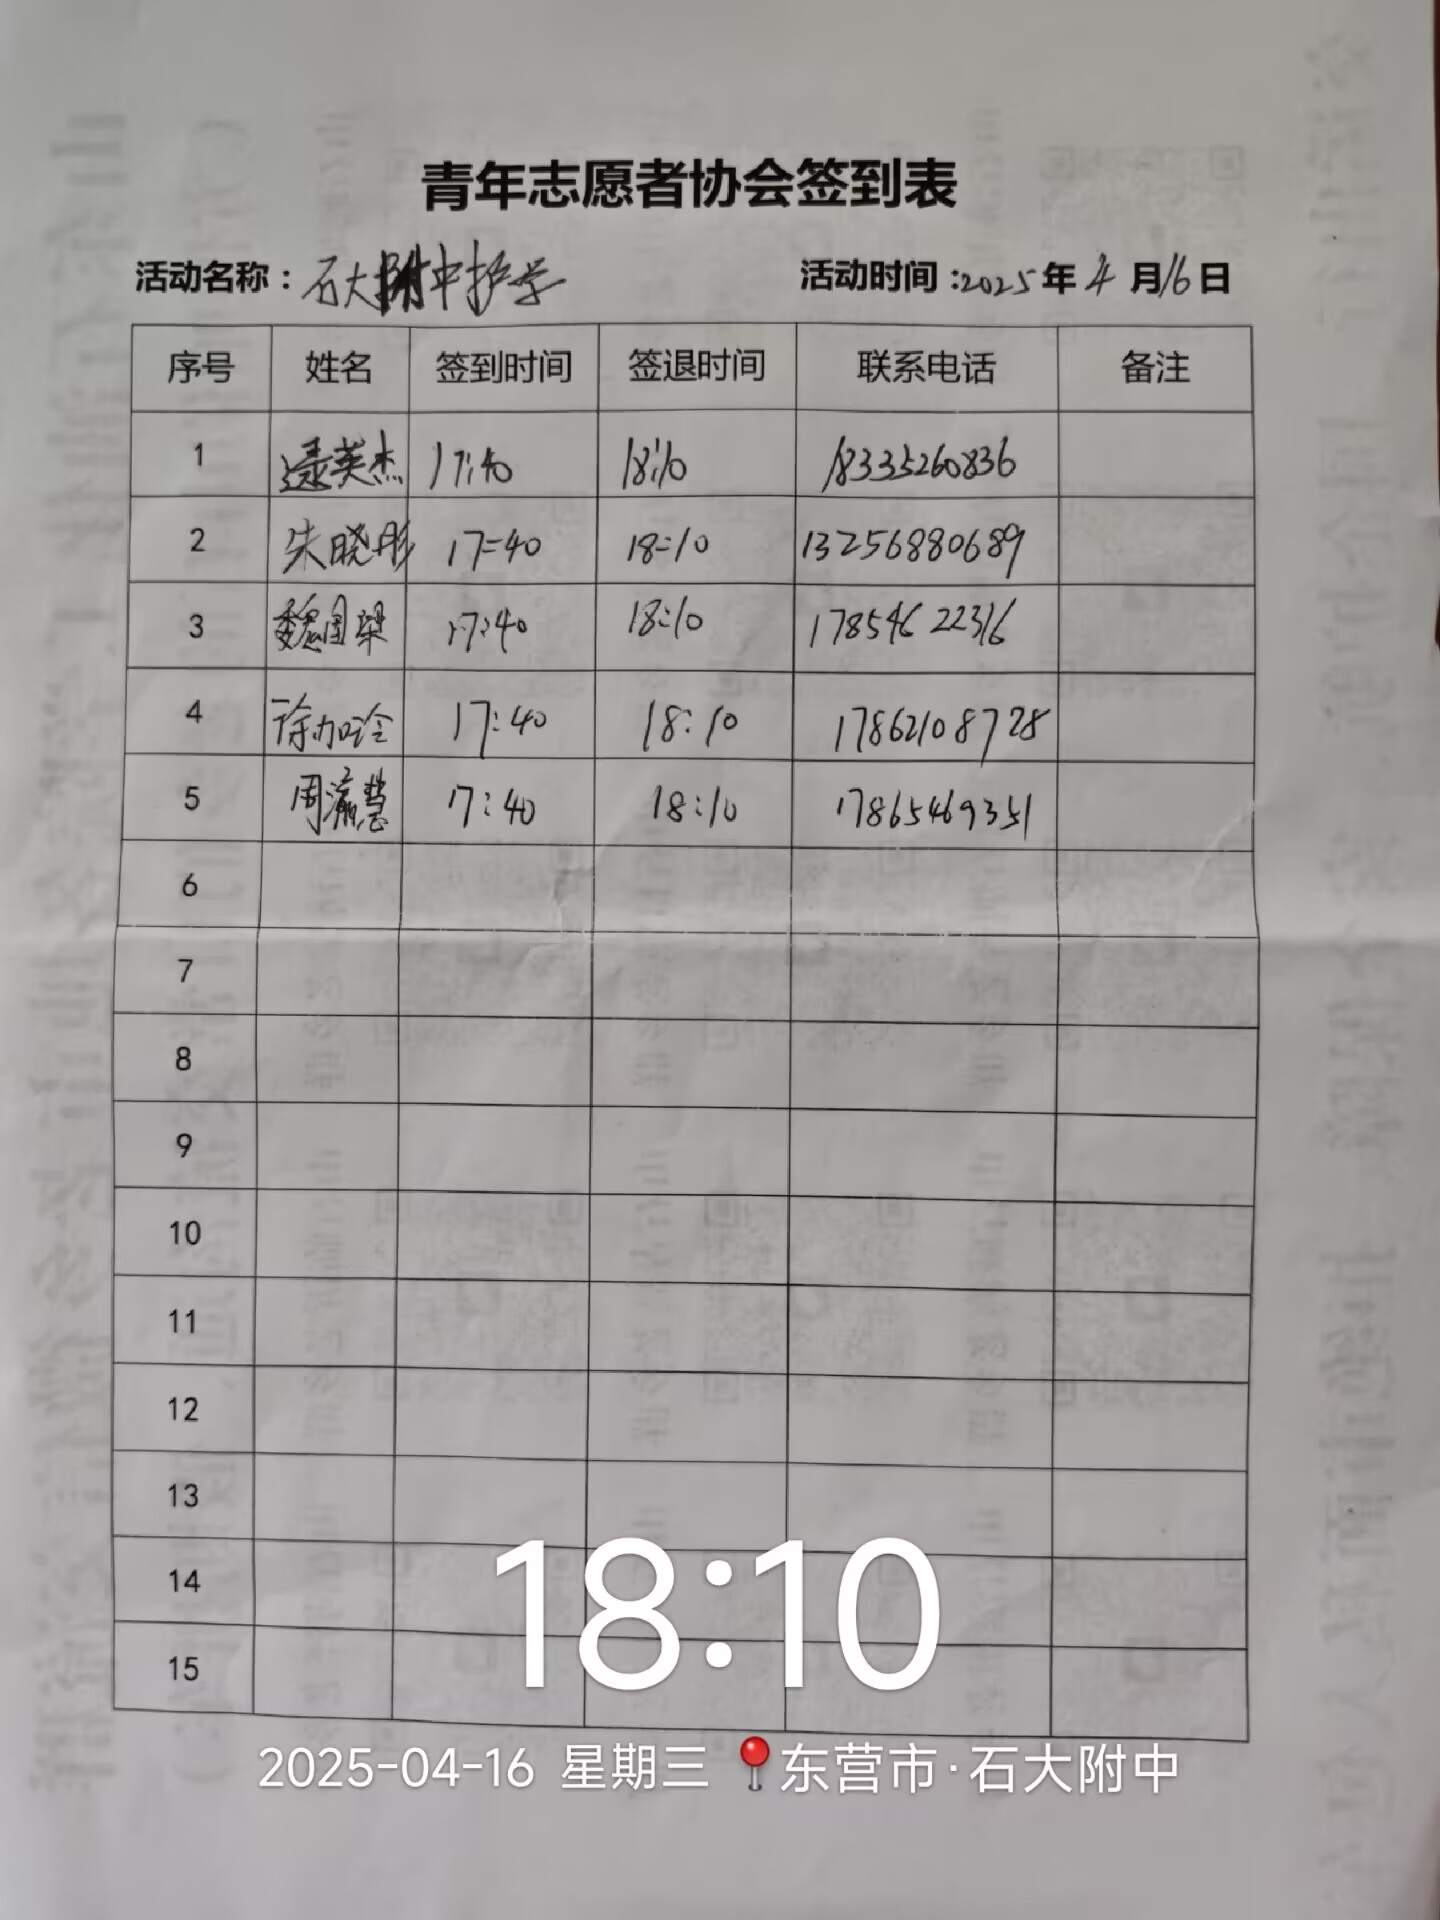 青年志愿者协会签到表
活动名称：石大附中护学 活动时间：2025年4月16日
序号 姓名 签到时间 签退时间 联系电话 备注
1 逯英杰 17:40 18:10 18335260836
2 朱晓彤 17:40 18:10 13256880689
3 魏国梁 17:40 18:10 17854622316
4 徐加冷 17:40 18:10 17862108728
5 周瀛慧 17:40 18:10 17865469351
6
7
8
9
10
11
12
13
14
15
18:10
2025-04-16 星期三 东营市·石大附中